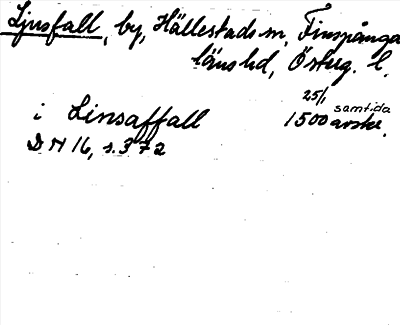 Ljusfall, by, Hällestads sn, Finspånga
läns hd, Österg. l.
25/1 samtida
i Linsaffall 1500 avskr.
DN 16, s. 372